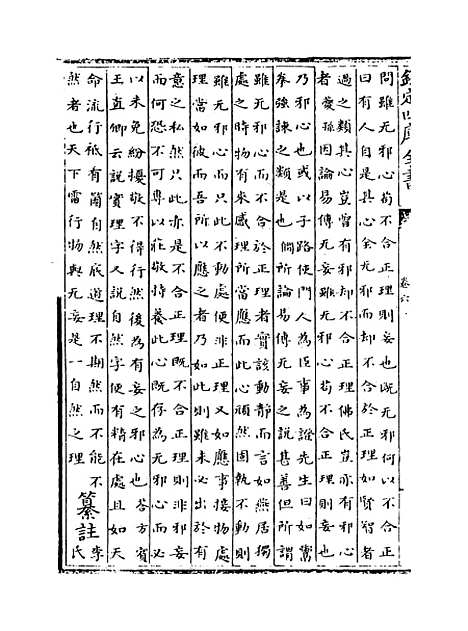 欽定四庫全書
卷六
問雖无邪心苟不合正理則妄也既无邪何以不合正
曰有人自是其心全无邪而却不合於正理如賢智者
過之類其心豈曾有邪却不合正理佛氏豈亦有邪心
者夔孫因論易傳无妄雖无邪心苟不合正理則妄也
乃邪心也或以子路使門人為臣事為證先生曰如鬻
拳強諫之類是也僩所論易傳无妄之說甚善但所謂
雖无邪心而不合於正理者實該動靜而言如燕居獨
處之時物有來感理所當應而此心頑然固執不動則
雖无邪心而只此不動處便非正理又如應事接物處
理當如彼而吾所以應之者乃如此則雖未必出於有
意之私然只此亦是不合正理既不合正理則非邪妄
而何恐不可專以莊敬持養此心既存為无邪心而必
以未免紛擾敬不得行然後為有妄之邪心也答方賓
王直卿云說實理字又說自然字便有精在處且如天
命流行祗有箇自然底道理不期然而不能不
然者也天下雷行物與无妄是一自然之理
纂註
李氏